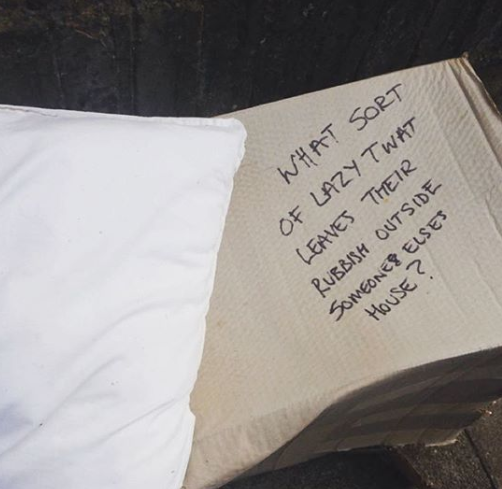 WHAT SORT
OF LAZY TWAT
LEAVES THEIR
RUBBISH OUTSIDE
SOMEONES ELSES
HOUSE?